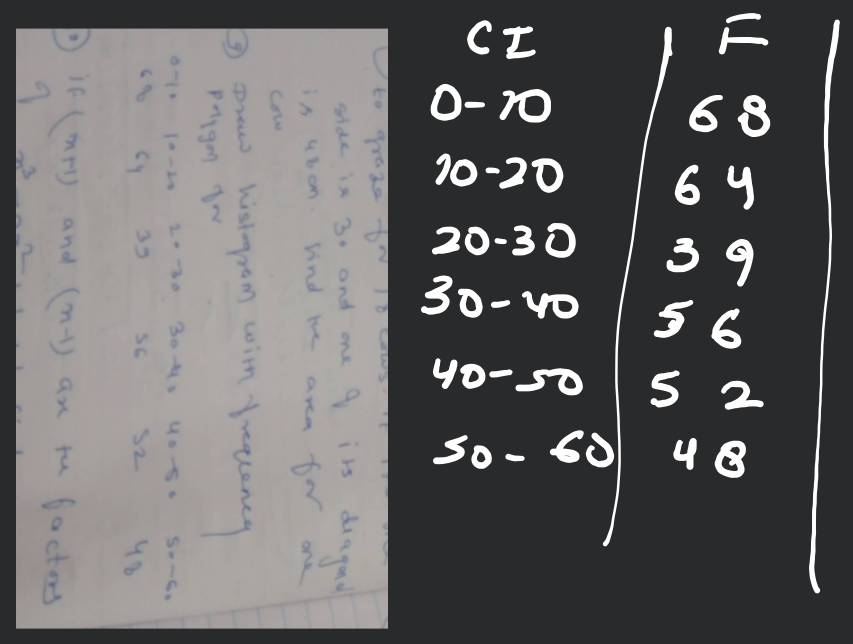 to graze for 18 cows. if
side is 30 and one of its diagonal
is 48cm. find the area for one
cow
Draw histogram with frequency
polygon for
0-10 10-20 20-30 30-40 40-50 50-60
68 64 39 56 52 48
if (x+1) and (x-1) are the factors
of
CI F
0-10 68
10-20 64
20-30 39
30-40 56
40-50 52
50-60 48